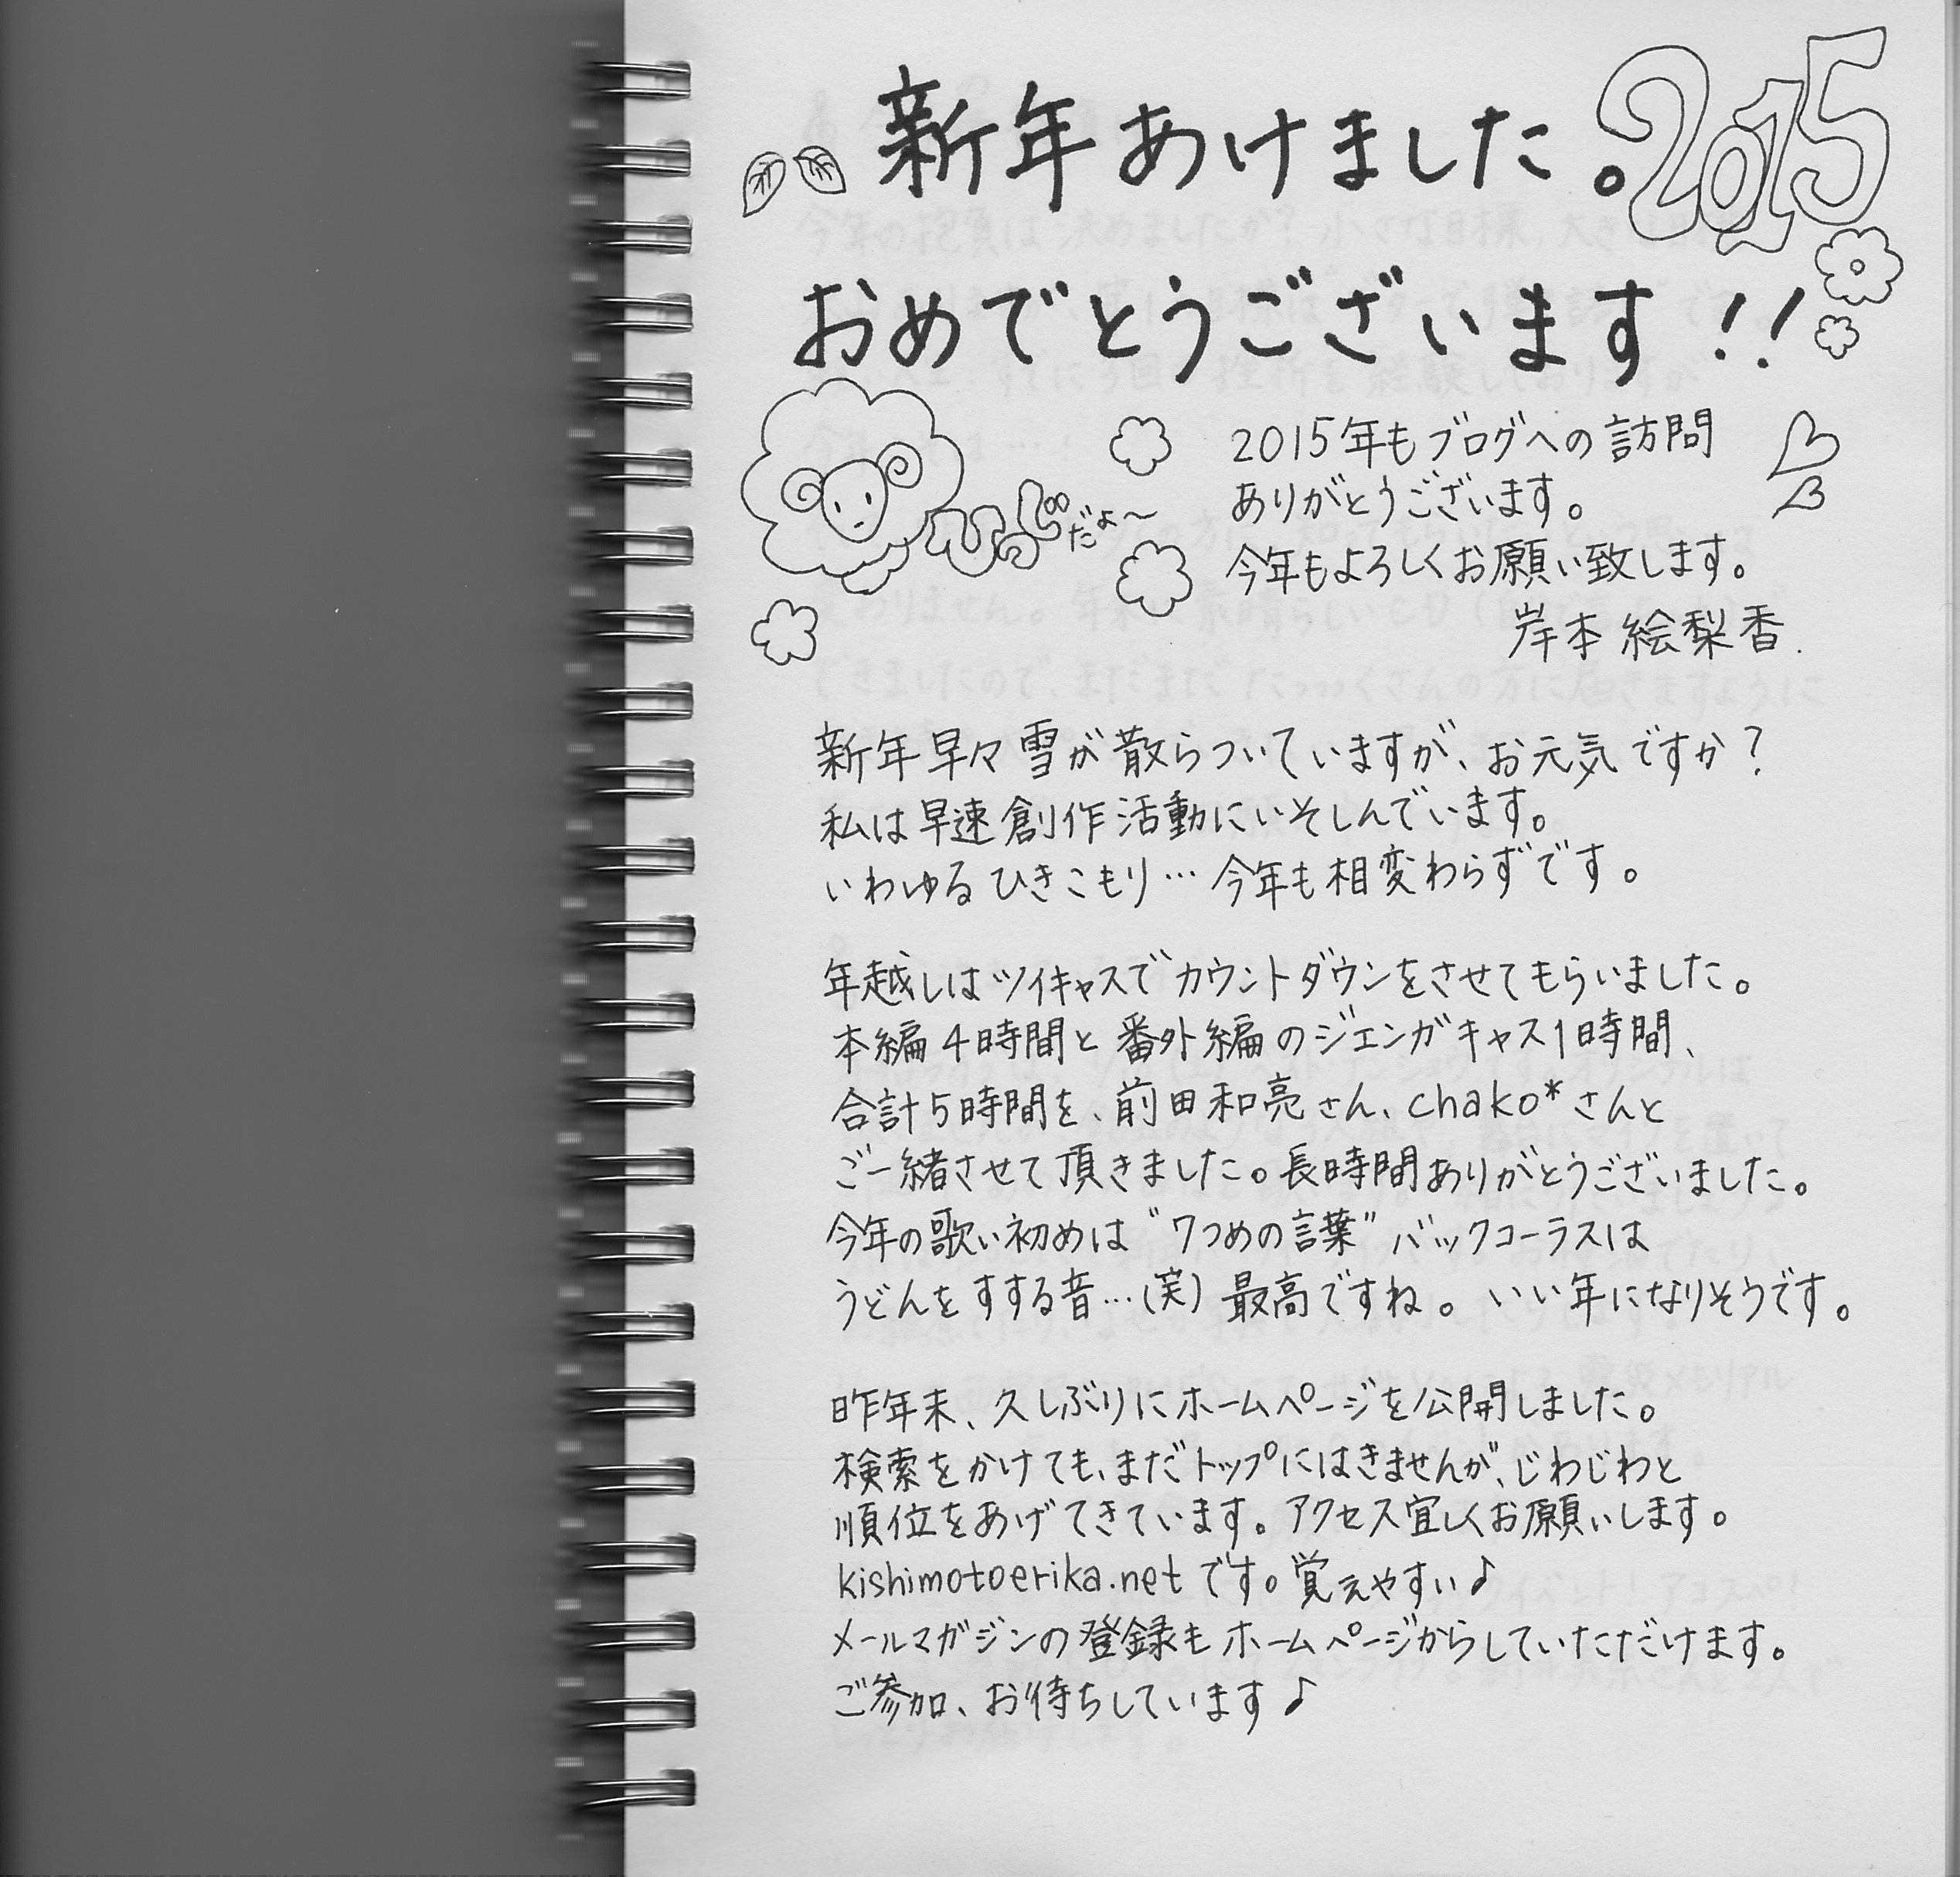 新年あけました。2015
おめでとうございます!!
ひつじだよ〜
2015年もブログへの訪問
ありがとうございます。
今年もよろしくお願い致します。
岸本 絵梨香.
新年早々雪が散らついていますが、お元気ですか?
私は早速創作活動にいそしんでいます。
いわゆるひきこもり…今年も相変わらずです。
年越しはツイキャスでカウントダウンをさせてもらいました。
本編4時間と番外編のジェンガキャス1時間、
合計5時間を、前田和亮さん、chako*さんと
ご一緒させて頂きました。長時間ありがとうございました。
今年の歌い初めは"7つめの言葉"バックコーラスは
うどんをすする音…(笑)最高ですね。いい年になりそうです。
昨年末、久しぶりにホームページを公開しました。
検索をかけても、まだトップにはきませんが、じわじわと
順位をあげてきています。アクセス宜しくお願いします。
kishimotoerika.netです。覚えやすい♪
メールマガジンの登録もホームページからしていただけます。
ご参加、お待ちしています♪